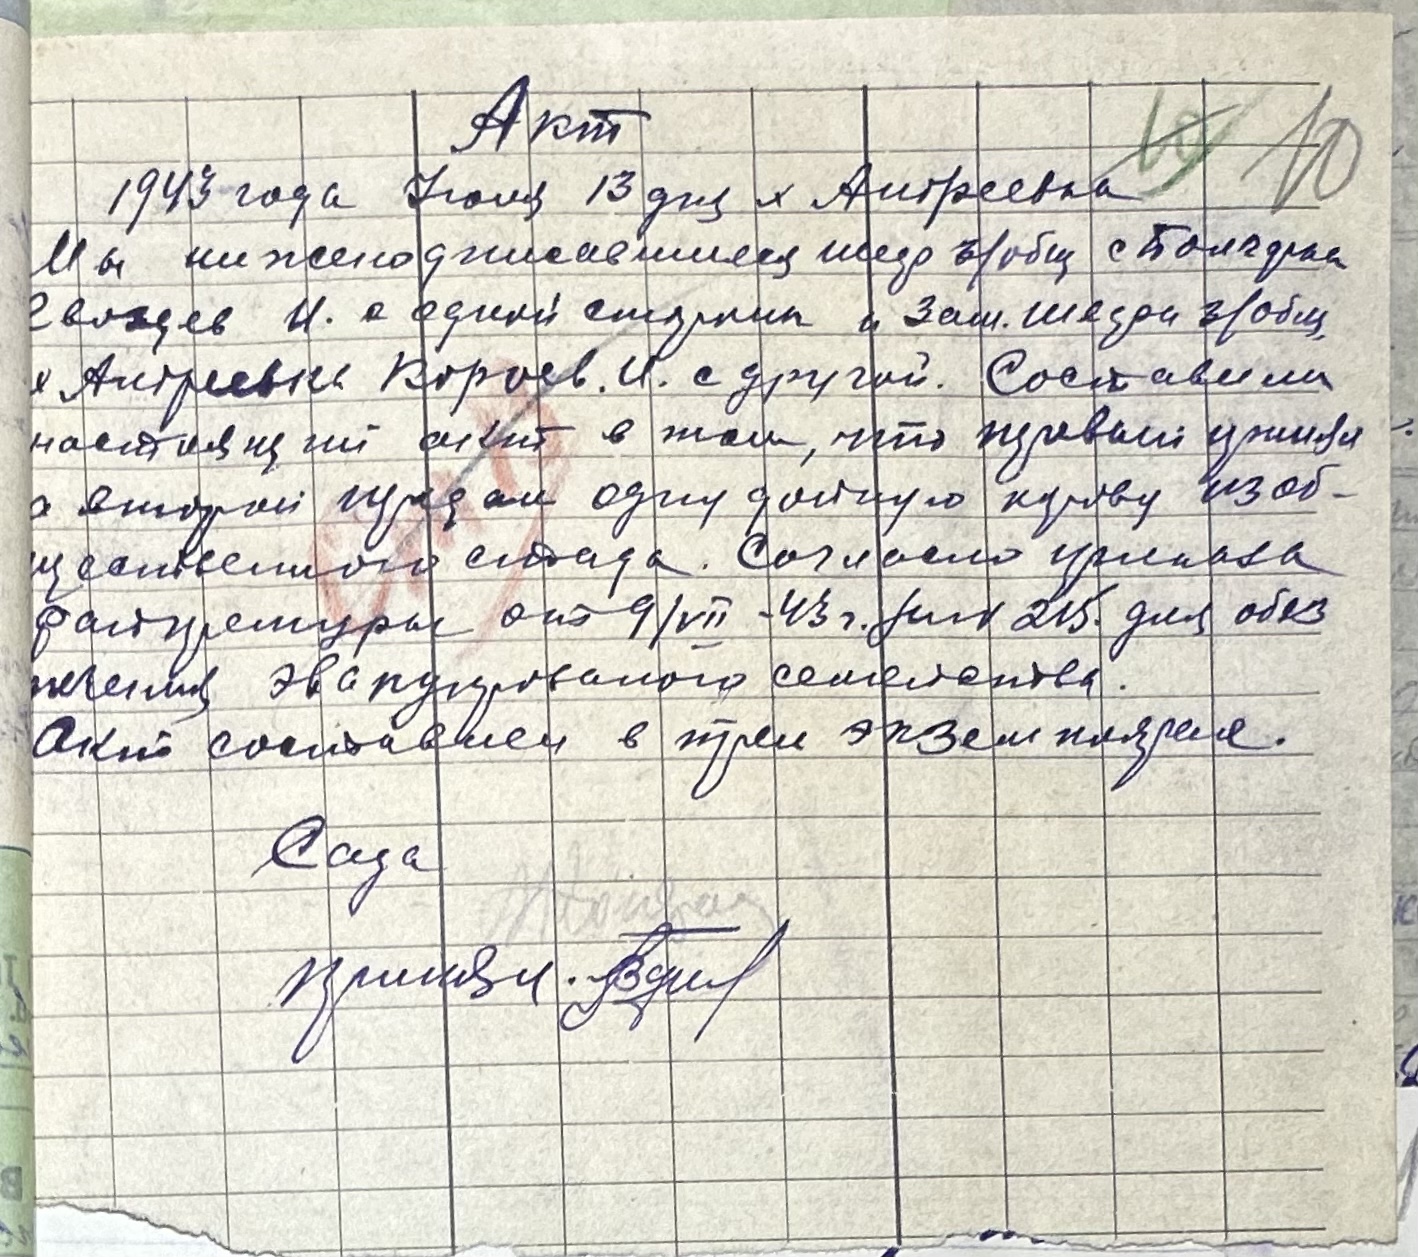 Акт
10 10
1943 года Июля 13 дня х Андреевка
Мы нижеподписавшиеся шефа з/общ
Гвоздев И. с одной стороны и Зам. шефа з/общ
х Андреевка Короев. И. с другой. Составили
настоящий акт в том, что первый принял
а второй передал одну дойную корову из об-
щественного стада. Согласно приказа
фатуры от 9/VII-43 г. 215. для обез
печения эвакуированого семейства.
Акт составлен в трех экземплярах.
Сдал
принял.